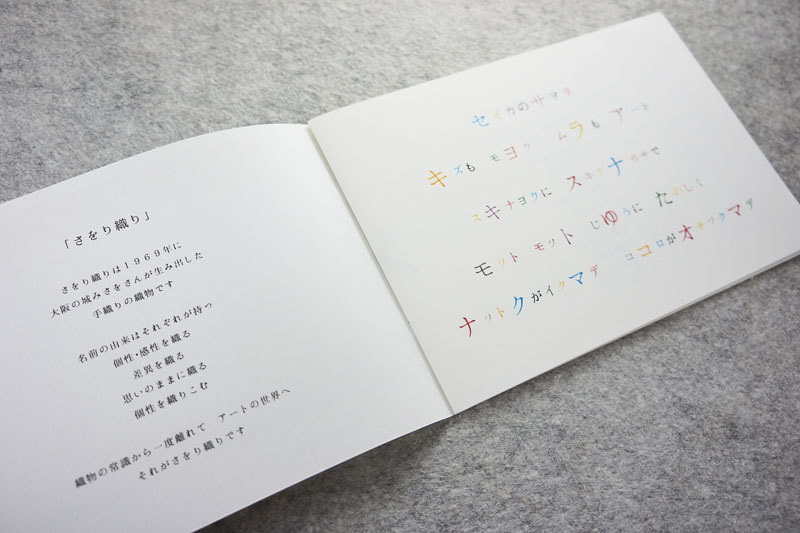 「さをり織り」
さをり織りは１９６９年に
大阪の城みさをさんが生み出した
手織りの織物です
名前の由来はそれぞれが持つ
個性・感性を織る
差異を織る
思いのままに織る
個性を織りこむ
織物の常識から一度離れて　アートの世界へ
それがさをり織りです
セイカのサヲリ
キズも モヨウ　ムラも アート
スキナヨウに スキナ ガラで
モット モット じゆうに たのしく
ナットクがイクマデ　ココロがオチツクマデ